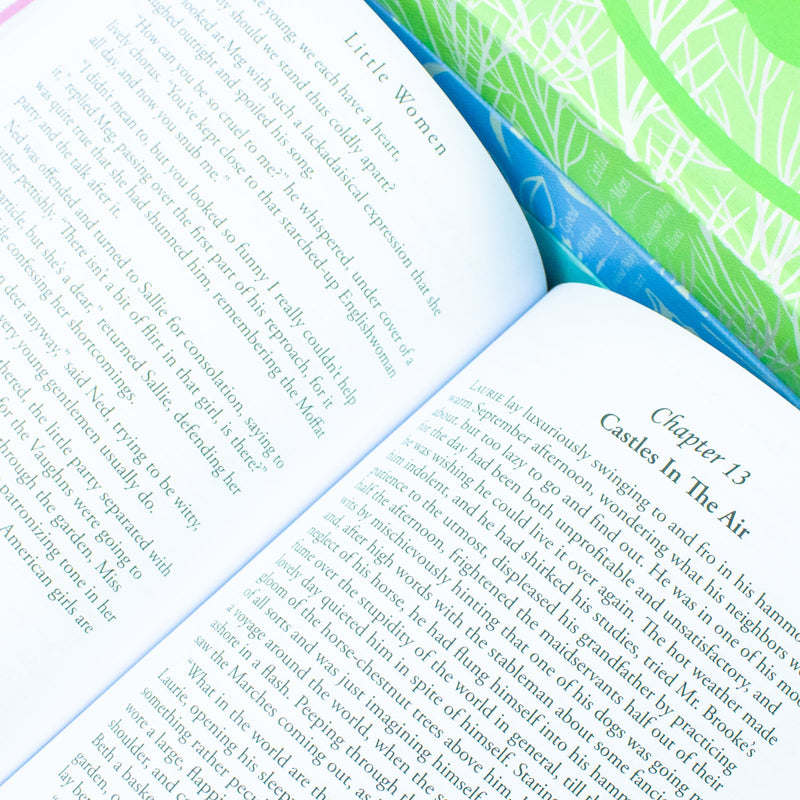 Little Women
young, we each have a heart,
should we stand thus coldly apart?
looked at Meg with such a lackadaisical expression that she
ughed outright and spoiled his song.
“How can you be so cruel to me?” he whispered, under cover of a
lively chorus. “You’ve kept close to that starched-up Englishwoman
all day and now you snub me.”
“I didn’t mean to, but you looked so funny I really couldn’t help
it,” replied Meg, passing over the first part of his reproach, for it
was quite true that she had shunned him, remembering the Moffat
party and the talk after it.
Ned was offended and turned to Sallie for consolation, saying to
ther pettishly. “There isn’t a bit of flirt in that girl, is there?”
article, but she’s a dear,” returned Sallie, defending her
ile confessing her shortcomings.
n deer anyway,” said Ned, trying to be witty,
very young gentlemen usually do.
thered, the little party separated with
for the Vaughns were going to
through the garden, Miss
patronizing tone in her
American girls are
Chapter 13
Castles In The Air
Laurie lay luxuriously swinging to and fro in his hammo
warm September afternoon, wondering what his neighbors w
about, but too lazy to go and find out. He was in one of his moo
for the day had been both unprofitable and unsatisfactory, and
he was wishing he could live it over again. The hot weather made
him indolent, and he had shirked his studies, tried Mr. Brooke’s
patience to the utmost, displeased his grandfather by practicing
half the afternoon, frightened the maidservants half out of their
wits by mischievously hinting that one of his dogs was going
and, after high words with the stableman about some fancie
neglect of his horse, he had flung himself into his hamm
fume over the stupidity of the world in general, till
lovely day quieted him in spite of himself. Staring
gloom of the horse-chestnut trees above him,
of all sorts and was just imagining himself
a voyage around the world, when the so
ashore in a flash. Peeping through th
saw the Marches coming out, as i
“What in the world are th
Laurie, opening his sleep
something rather pecul
wore a large, flappi
shoulder, and co
Beth a baske
garden, o
lay be
Little
Men
Louisa May
Good
Wives